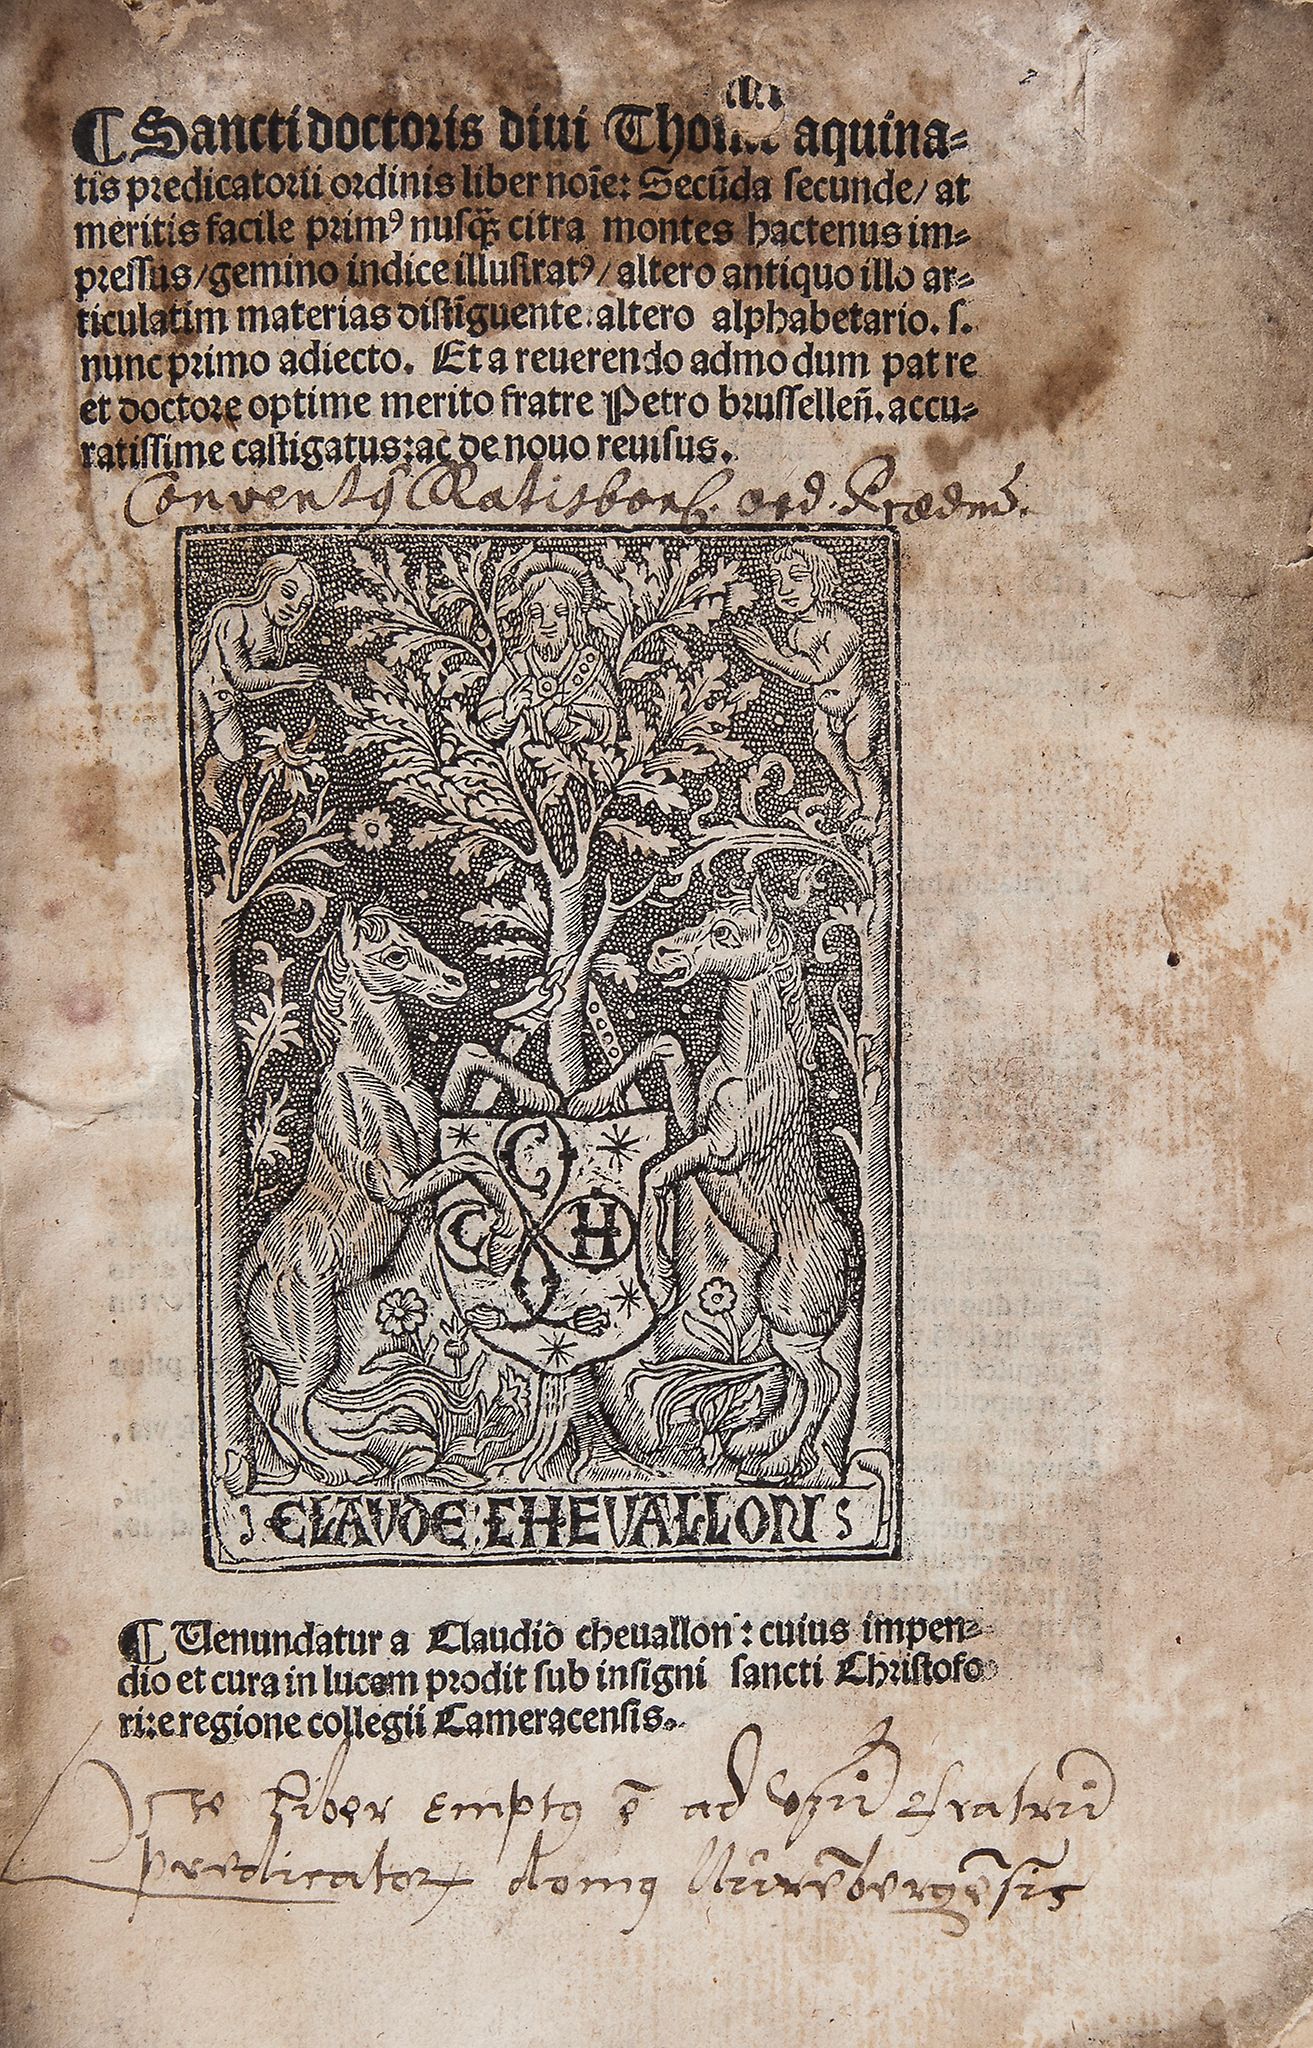 ¶ Sancti doctoris diui Thome aquina-
tis predicatorii ordinis liber noīe: Secūda secunde/ at
meritis facile primꝰ nusq̃ꝫ citra montes hactenus im-
pressus/gemino indice illustratꝰ/altero antiquo illo ar-
ticulatim materias distīguente: altero alphabetario. s.
nunc primo adiecto. Et a reuerendo admodum patre
et doctore optime merito fratre Petro brusselleñ. accu-
ratissime castigatus: ac de nouo reuisus.
Conventꝰ Ratisbon. ord. Prædm̄.
C
C H
CLAUDE CHEVALLON
¶ Uenundatur a Claudio cheuallon: cuius impen-
dio et cura in lucem prodit sub insigni sancti Christofo
ri: e regione collegii Cameracensis.
Iste Liber emptꝰ ē ad usū fratrū
predicatoꝝ domꝰ Nurēbergēsis